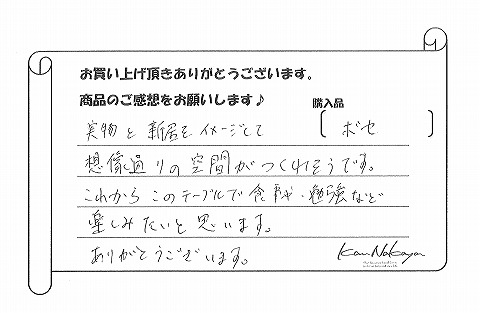 お買い上げ頂きありがとうございます。
商品のご感想をお願いします♪
購入品
[ ボセ ]
実物と新居をイメージして
想像通りの空間がつくれそうです。
これからこのテーブルで食事、勉強など
楽しみたいと思います。
ありがとうございます。